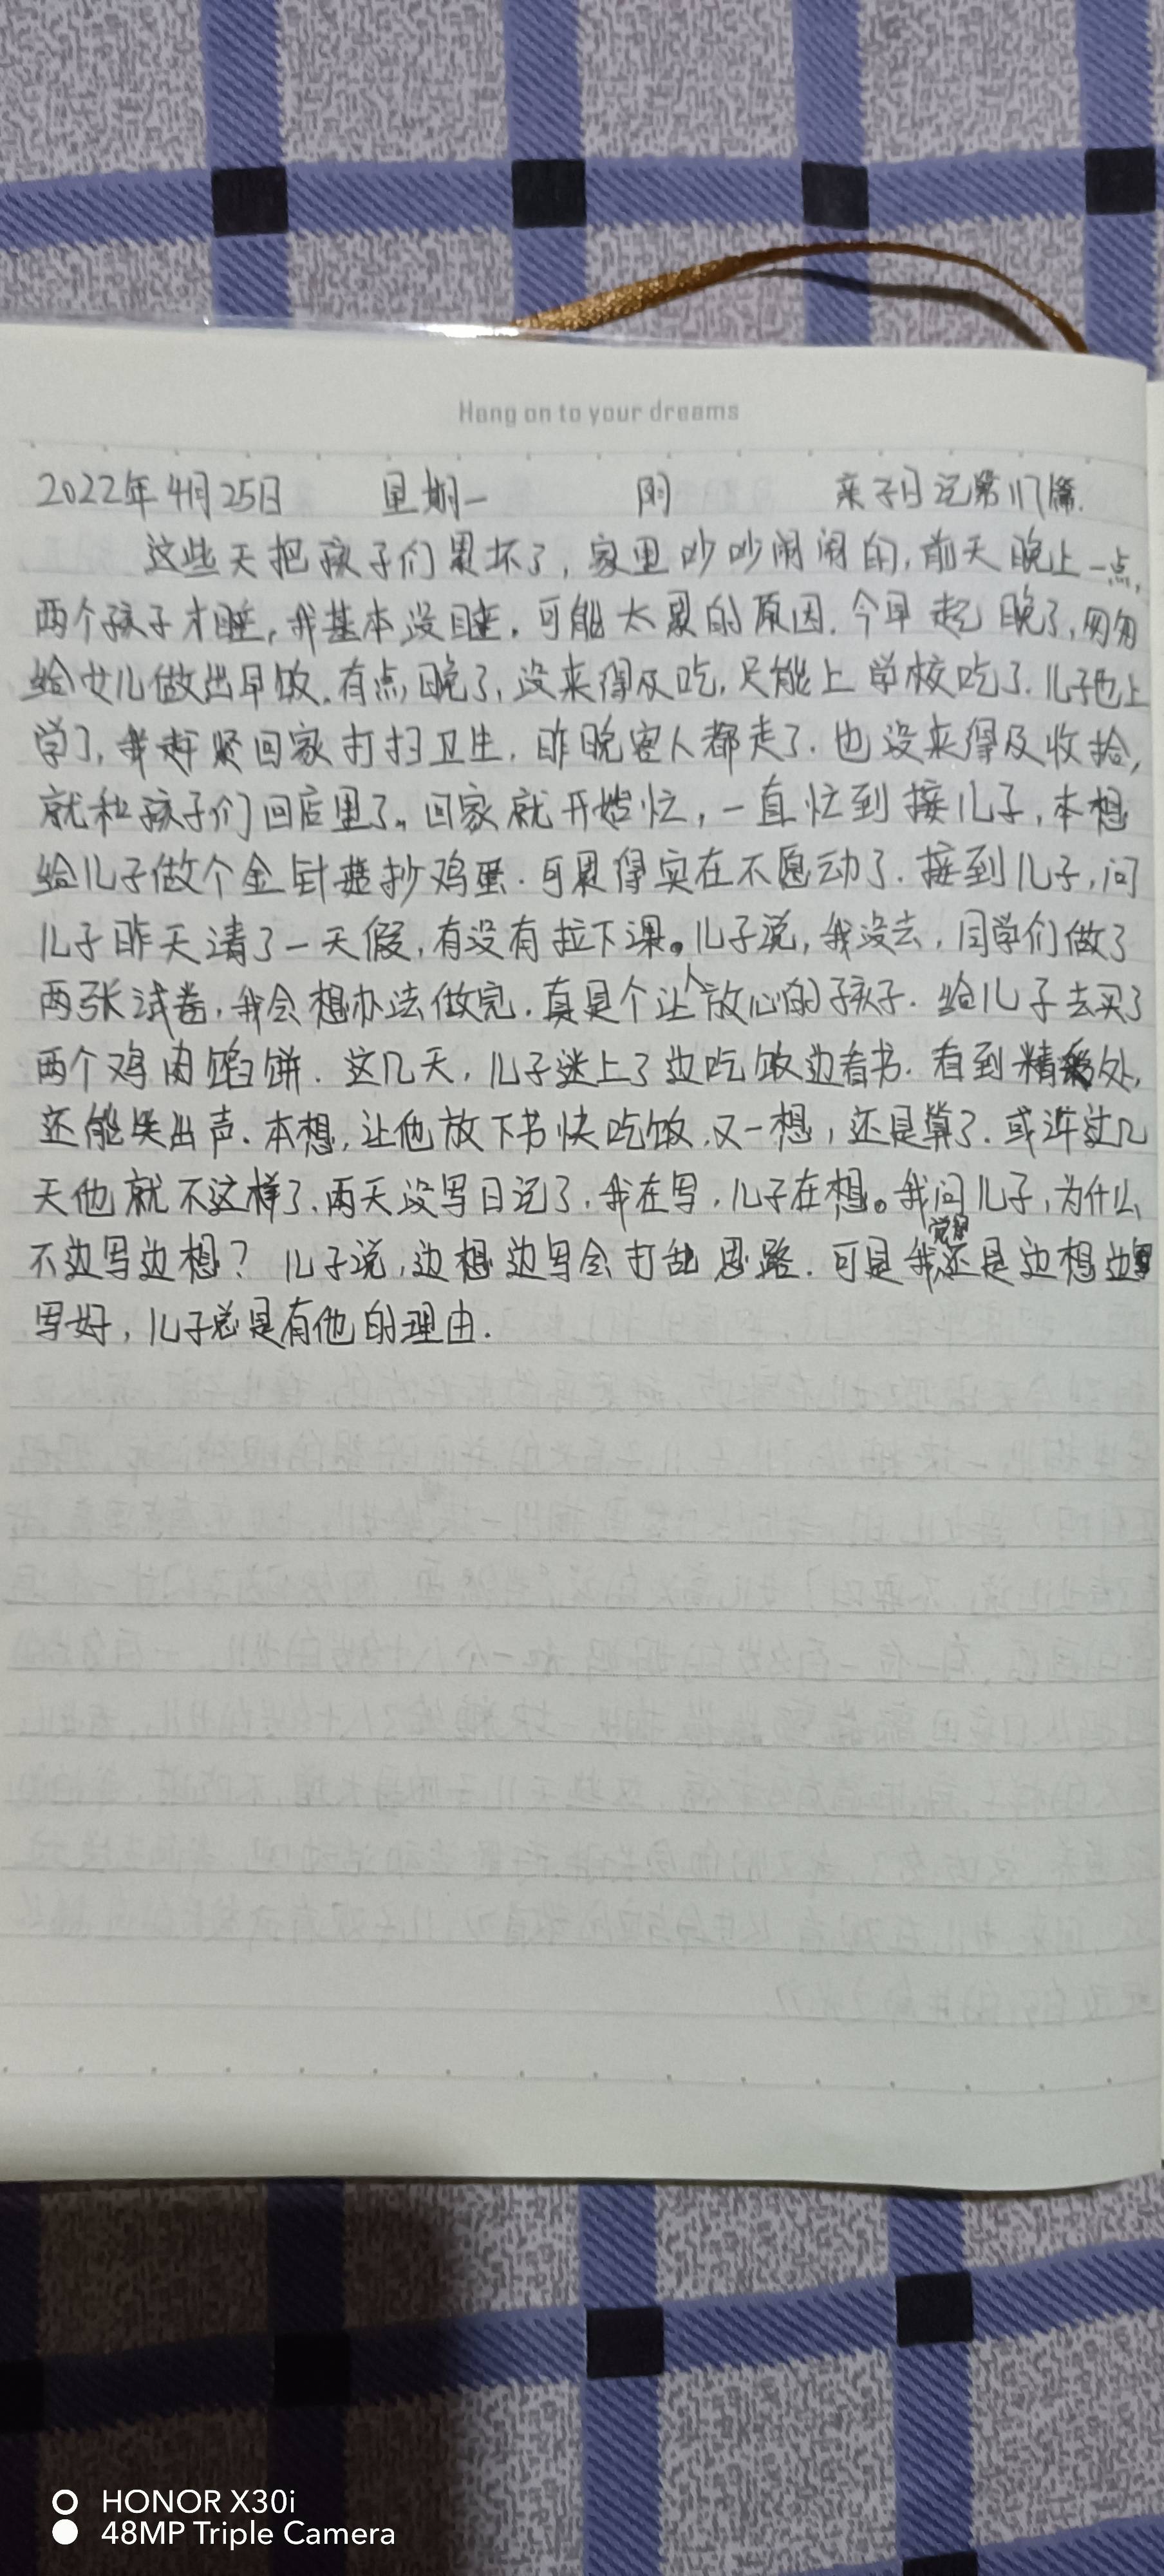 Hang on to your dreams
2022年4月25日 星期一 阴 亲子日记第117篇.
这些天把孩子们累坏了,家里吵吵闹闹的,前天晚上一点,
两个孩子才睡,我基本没睡.可能太累的原因.今早起晚了,匆匆
给女儿做出早饭.有点晚了,没来得及吃,只能上学校吃了.儿子也上
学了,我赶紧回家打扫卫生,昨晚客人都走了.也没来得及收拾,
就和孩子们回店里了。回家就开始忙,一直忙到接儿子,本想
给儿子做个金针菇抄鸡蛋.可累得实在不愿动了.接到儿子,问
儿子昨天请了一天假,有没有拉下课。儿子说,我没去,同学们做了
两张试卷,我会想办法做完.真是个让人放心的孩子.给儿子去买了
两个鸡肉馅饼.这几天,儿子迷上了边吃饭边看书.看到精彩处,
还能失出声.本想,让他放下书快吃饭,又一想,还是算了.或许过几
天他就不这样了.两天没写日记了.我在写,儿子在想。我问儿子,为什么
不边写边想?儿子说,边想边写会打乱思路.可是我觉得还是边想边
写好,儿子总是有他的理由.
HONOR X30i
48MP Triple Camera